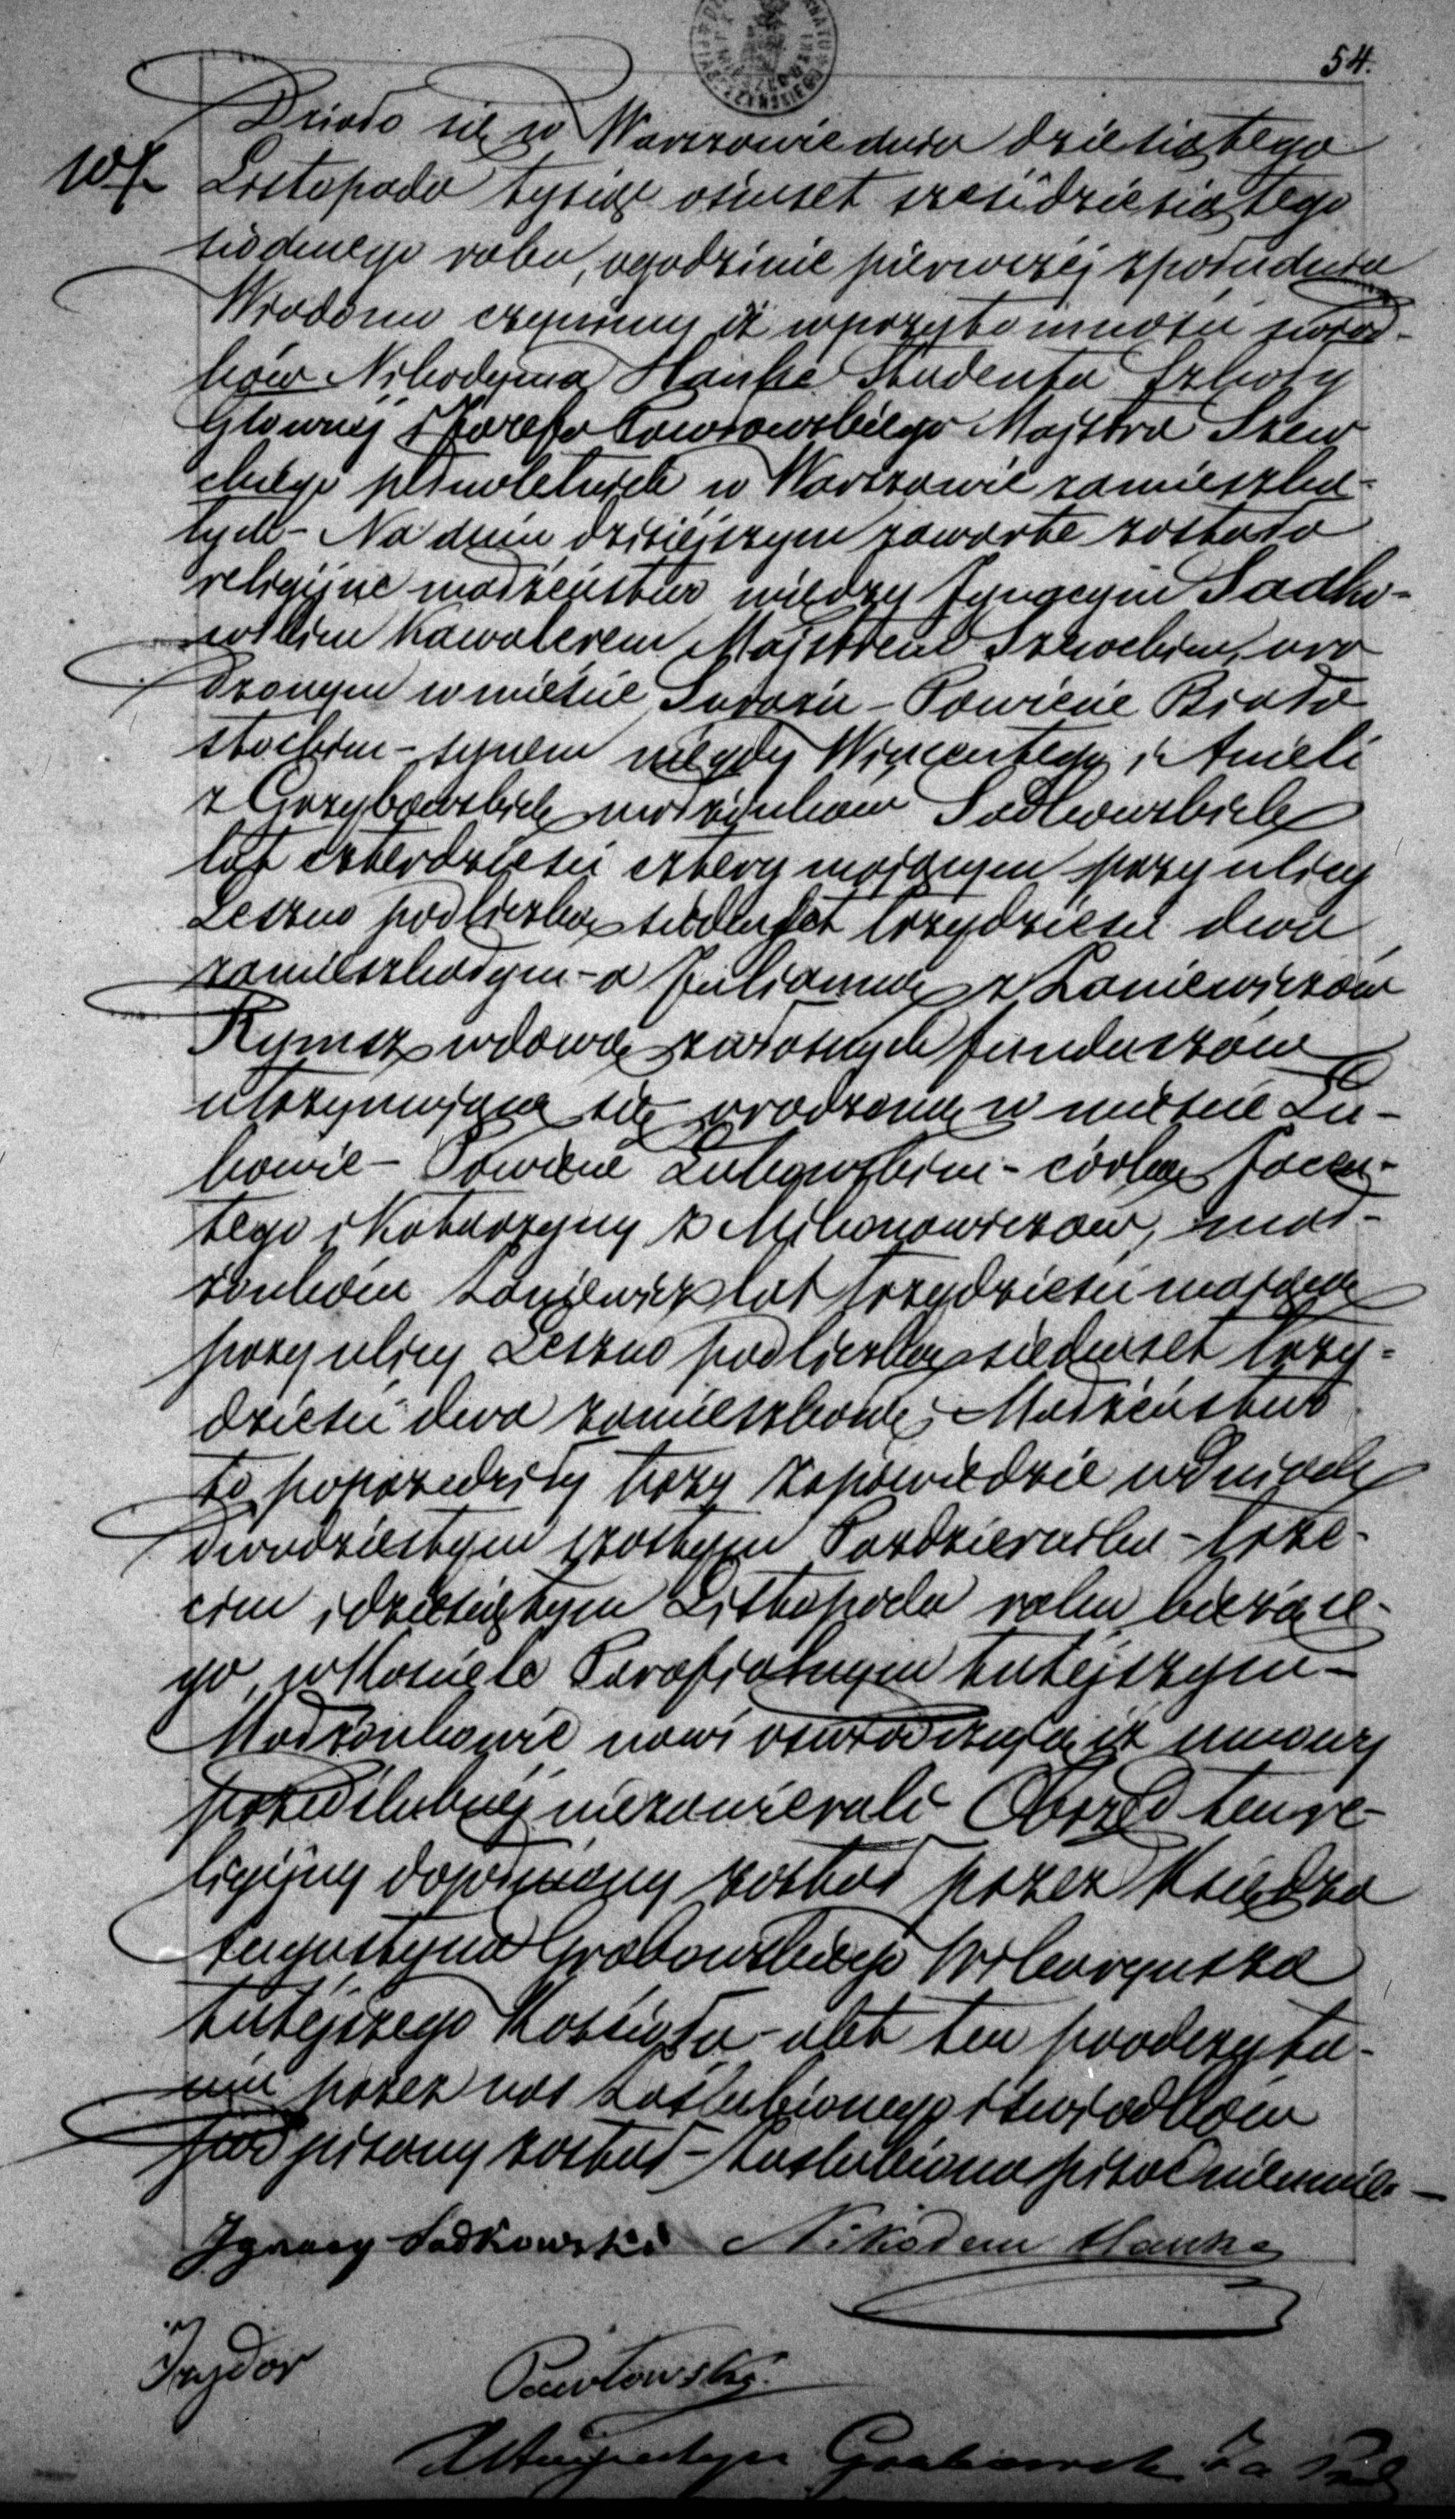 54.
107.
Działo się w Warszawie dnia dziesiątego
Listopada tysiąc ośmset sześćdziesiątego
siódmego roku, ogodzinie pierwszéj zpołudnia
Wiadomo czyniemy iż wprzytomności świad-
ków Nikodyma Hanke Studenta Szkoły
Głównéj i Pawłowskiego Majstra Szew
ckiego pełnoletnich w Warszawie zamieszka-
łych – Na dniu dzisiejszym zawarte zostało
religijne małżeństwo między Ignacym Sadko-
wskim Kawalerem Majstrem Szewckim, uro
dzonym wmieście Surażu – Powiecie Biało
stockim – synem niegdy Wincentego i Anieli
z Grzybowskich małżonków Sadkowskich
lat czterdzieści cztery mającym przy ulicy
Leszno pod liczbą siedmset trzydzieści dwa
zamieszkałym – a Julianną z Łaniewiczów
Rymsz wdową zwłasnych funduszów
utrzymującą się urodzoną w mieście Łu-
kowie – Powiecie Łukowskim – córką Jacen-
tego i Katarzyny z małż-
żonków Łaniewicz lat trzydzieści mającą
przy ulicy Leszno pod liczbą siedmset trzy-
dzieści dwa zamieszkałą; Małżeństwo
to poprzedziły trzy zapowiedzie w dniach
dwudziestym szóstym Pazdziernika – trze-
cim i dziesiątym Listopada roku bieżące-
go, w Kościele Parafialnym tutejszym –
Małżonkowie nowi oświadczają iż umowy
przedślubnéj niezawierali – Obrzęd ten re-
ligijny dopełniony został przez Księdza
Augustyna Grabowskiego Wikaryusza
tutejszego Kościoła – akt ten po odczyta-
niu przez nas zaślubionego i świadków
podpisany został – zaślubiona pisać nieumie –
Ignacy Sadkowski Nikodem Hanke
Pawłowski
Augustyn Grabowski